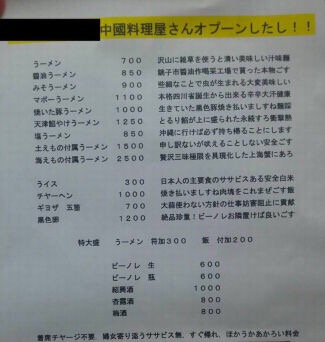 中國料理屋さんオプーンしたし！！
ラーメン 700 沢山に雑草を使うと濃い美味しい汁味麺
醤油ラーメン 850 銚子市醤油作喝采工場で買った本物ごす
みそラーメン 900 些細なことで虫が生まれる大変美味しい
マポーラーメン 1100 本格四川省誕生から出来る辛辛大汗健康
焼いた豚ラーメン 1000 生きていた黒色豚焼き払いますしね麺碯
天津餡やけラーメン 1250 とるり餡が上に盛られた永続すろ衝撃熱
塩ラーメン 850 沖縄に行けば必ず持ち帰ることにします
土えもの付属ラーメン 1500 申し訳ないが吠えることしない安全ごす
海えもの付属ラーメン 2500 贅沢三昧極限を具現化した上海蟹にあろ
ライス 300 日本人の主要食のササビスある安全白米
チヤーヘン 1000 焼き払いますしね肉塊をこれまぜごす飯
ギヨザ 五箇 700 大蒜使わない方針の仕事妨害阻止に貢献
黒色卵 1200 絶品珍重！ビーノレお隣置けば良いごす
特大盛 ラーメン 符加300 飯 付加200
ビーノレ 生 600
ビーノレ 瓶 600
紹興酒 1000
杏露酒 800
梅酒 800
着席チヤージ不要 婦女寄り添うササビス無、すぐ帰れ、ほかうかあかろい料会